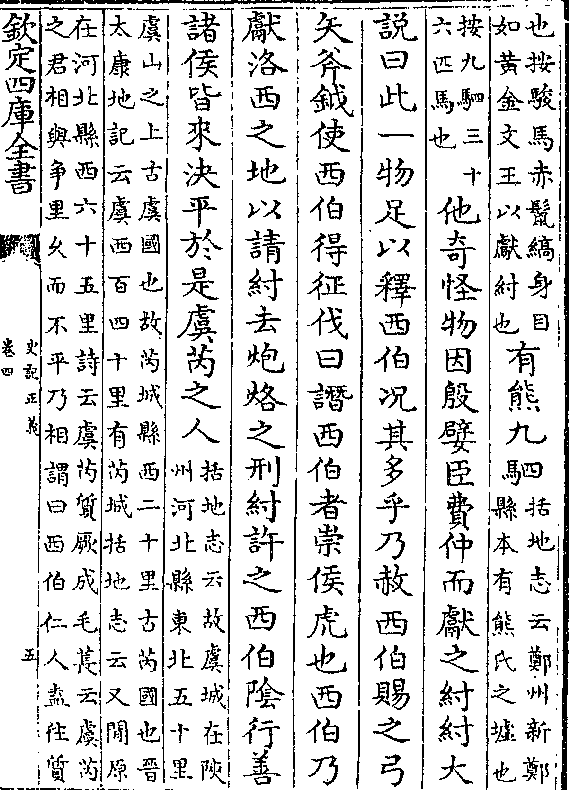 也按駿馬赤鬣縞身目
如黃金文王以獻紂也
有熊九駟
括地志云鄭州新鄭
縣本有熊氏之墟也
按九駟三十
六匹馬也
他奇怪物因殷嬖臣費仲而獻之紂紂大
說曰此一物足以釋西伯况其多乎乃赦西伯賜之弓
矢斧鉞使西伯得征伐曰譖西伯者崇侯虎也西伯乃
獻洛西之地以請紂去炮烙之刑紂許之西伯陰行善
諸侯皆來決平於是虞芮之人
括地志云故虞城在陜
州河北縣東北五十里
虞山之上古虞國也故芮城縣西二十里古芮國也晉
太康地記云虞西百四十里有芮城括地志云又閒原
在河北縣西六十五里詩云虞芮質厥成毛萇云虞芮
之君相與爭里乆而不平乃相謂曰西伯仁人盍往質
欽定四庫全書
史記正義
卷四
五